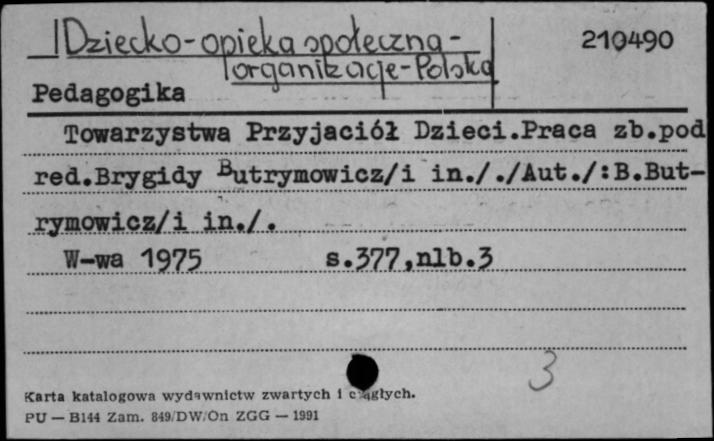 Dziecko-opieka społeczna-
organizacje-Polska
210490
Pedagogika
Towarzystwa Przyjaciół Dzieci.Praca zb.pod
red.Brygidy Butrymowicz/i in././Aut./:B.But-
rymowicz/i in./.
W-wa 1975 s.377,nlb.3
3
Karta katalogowa wydawnictw zwartych i ciągłych.
PU — B144 Zam. 849/DW/On ZGG — 1991